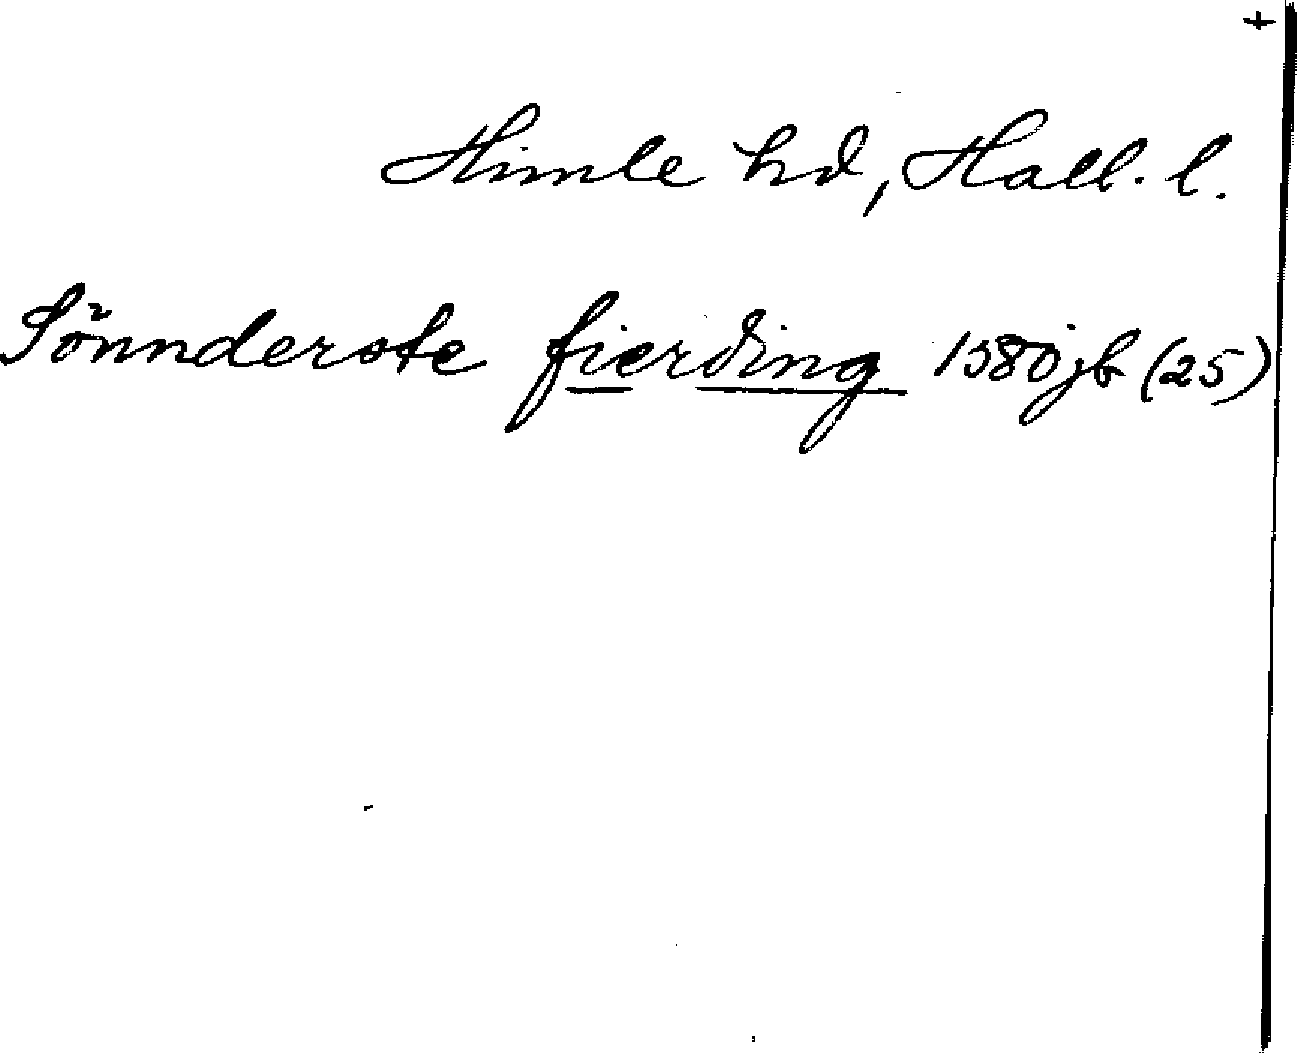 +
Himle hd, Hall. l.
Sönnderste fierding 1580 jb (25)